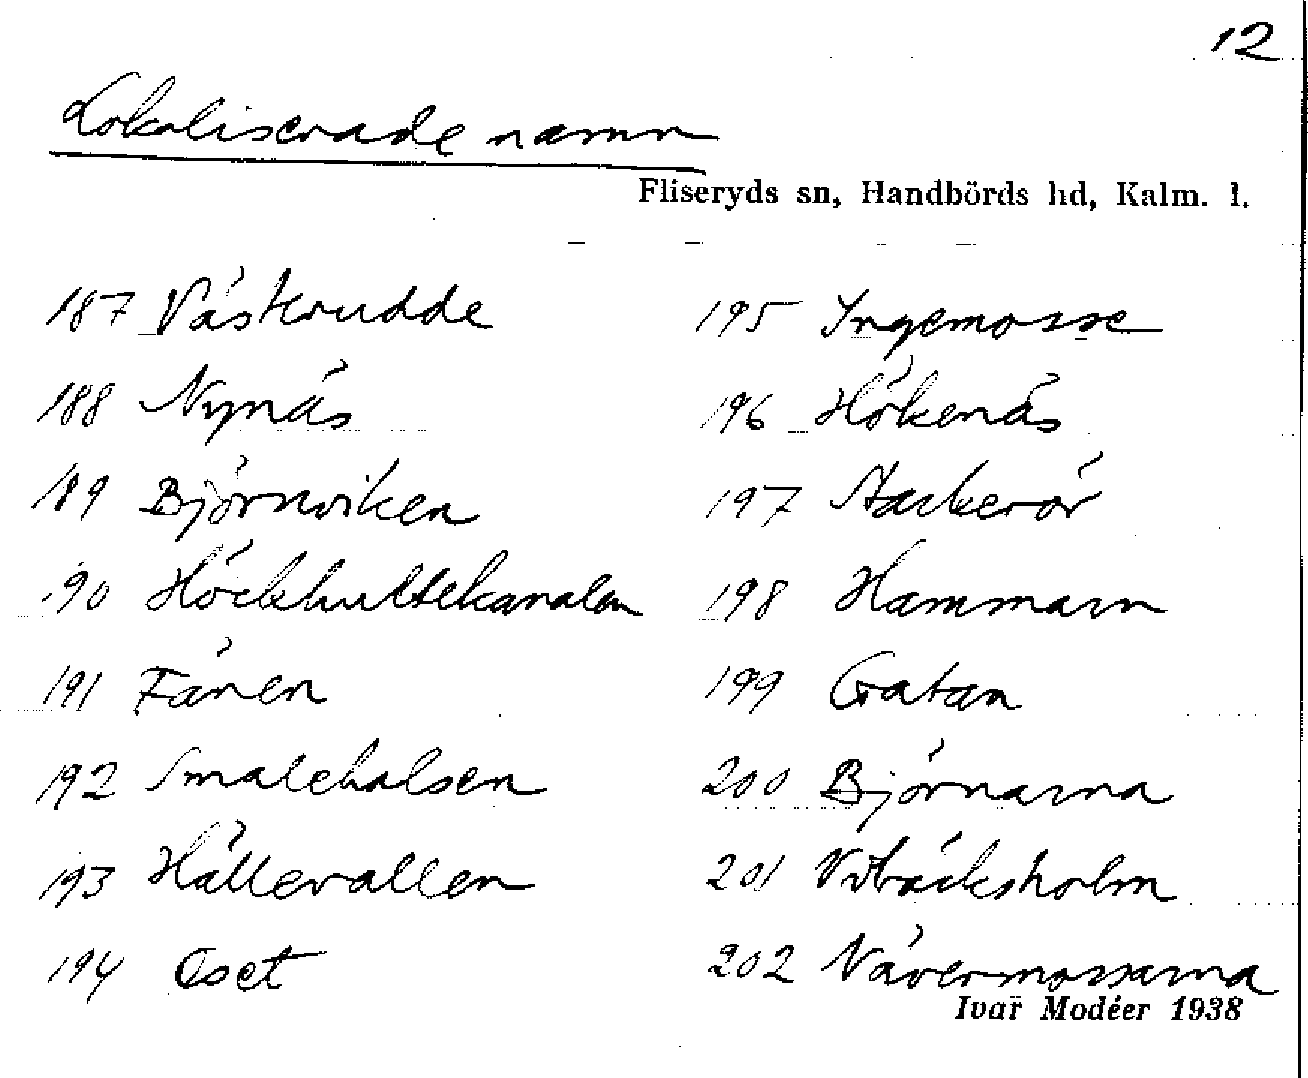 12
Lokaliserade namn
Fliseryds sn, Handbörds hd, Kalm. l.
187 Västrudde
188 Nynäs
189 Björnviken
190 Höckhultekanalen
191 Fånen
192 Smalehalsen
193 Hällevallen
194 Oset
195 Ingemosse
196 Hökenäs
197
198 Hammarn
199 Gatan
200 Björnarna
201 Vibäcksholm
202 Nävermossarna
Ivar Modéer 1938